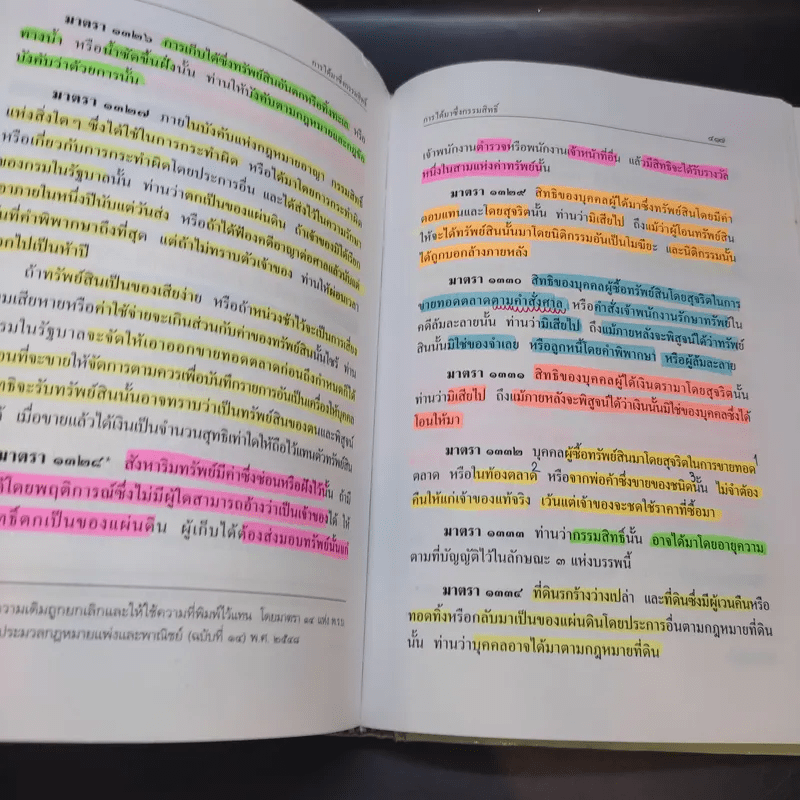 การได้มาซึ่งกรรมสิทธิ์
มาตรา ๑๓๒๖ การเก็บได้ซึ่งทรัพย์สินอันตกหรือทิ้งทะเล หรือ
ทางน้ำ หรือน้ำซัดขึ้นฝั่งนั้น ท่านให้บังคับตามกฎหมายและกฎข้อ
บังคับว่าด้วยการนั้น
มาตรา ๑๓๒๗ ภายในบังคับแห่งกฎหมายอาญา กรรมสิทธิ์
แห่งสิ่งใดๆ ซึ่งได้ใช้ในการกระทำผิด หรือได้มาโดยการกระทำผิด
หรือเกี่ยวกับการกระทำผิดโดยประการอื่น และได้ส่งไว้ในความรักษา
ของกรมในรัฐบาลนั้น ท่านว่าตกเป็นของแผ่นดิน ถ้าเจ้าของมิได้เรียก
เอาภายในหนึ่งปีนับแต่วันส่ง หรือถ้าได้ฟ้องคดีอาญาต่อศาลแล้วนับแต่
วันที่คำพิพากษาถึงที่สุด แต่ถ้าไม่ทราบตัวเจ้าของ ท่านให้ผ่อนเวลา
ออกไปเป็นห้าปี
ถ้าทรัพย์สินเป็นของเสียง่าย หรือถ้าหน่วงช้าไว้จะเป็นการเสี่ยง
ความเสียหายหรือค่าใช้จ่ายจะเกินส่วนกับค่าของทรัพย์สินนั้นไซร้ ท่านว่า
กรมในรัฐบาลจะจัดให้เอาออกขายทอดตลาดก่อนถึงกำหนดก็ได้
ก่อนที่จะขายให้จัดการตามควรเพื่อบันทึกรายการอันเป็นเครื่องให้บุคคล
สิทธิจะรับทรัพย์สินนั้นอาจทราบว่าเป็นทรัพย์สินของตนและพิสูจน์
ได้ เมื่อขายแล้วได้เงินเป็นจำนวนสุทธิเท่าใดให้ถือไว้แทนตัวทรัพย์สิน
มาตรา ๑๓๒๘* สังหาริมทรัพย์มีค่าซึ่งซ่อนหรือฝังไว้นั้น ถ้ามี
ได้โดยพฤติการณ์ซึ่งไม่มีผู้ใดสามารถอ้างว่าเป็นเจ้าของได้ ให้
สิทธิ์ตกเป็นของแผ่นดิน ผู้เก็บได้ต้องส่งมอบทรัพย์นั้นแก่
ความเดิมถูกยกเลิกและให้ใช้ความที่พิมพ์ไว้แทน โดยมาตรา ๑๔ แห่ง พ.ร.บ.
ประมวลกฎหมายแพ่งและพาณิชย์ (ฉบับที่ ๑๔) พ.ศ. ๒๕๔๘
การได้มาซึ่งกรรมสิทธิ์
๔๑๗
เจ้าพนักงานตำรวจหรือพนักงานเจ้าหน้าที่อื่น แล้วมีสิทธิจะได้รับรางวัล
หนึ่งในสามแห่งค่าทรัพย์นั้น
มาตรา ๑๓๒๙ สิทธิของบุคคลผู้ได้มาซึ่งทรัพย์สินโดยมีค่า
ตอบแทนและโดยสุจริตนั้น ท่านว่ามิเสียไป ถึงแม้ว่าผู้โอนทรัพย์สิน
ให้จะได้ทรัพย์สินนั้นมาโดยนิติกรรมอันเป็นโมฆียะ และนิติกรรมนั้น
ได้ถูกบอกล้างภายหลัง
มาตรา ๑๓๓๐ สิทธิของบุคคลผู้ซื้อทรัพย์สินโดยสุจริตในการ
ขายทอดตลาดตามคำสั่งศาล หรือคำสั่งเจ้าพนักงานรักษาทรัพย์ใน
คดีล้มละลายนั้น ท่านว่ามิเสียไป ถึงแม้ภายหลังจะพิสูจน์ได้ว่าทรัพย์
สินนั้นมิใช่ของจำเลย หรือลูกหนี้โดยคำพิพากษา หรือผู้ล้มละลาย
มาตรา ๑๓๓๑ สิทธิของบุคคลผู้ได้เงินตรามาโดยสุจริตนั้น
ท่านว่ามิเสียไป ถึงแม้ภายหลังจะพิสูจน์ได้ว่าเงินนั้นมิใช่ของบุคคลซึ่งได้
โอนให้มา
มาตรา ๑๓๓๒ บุคคลผู้ซื้อทรัพย์สินมาโดยสุจริตในการขายทอด 1
ตลาด หรือในท้องตลาด 2 หรือจากพ่อค้าซึ่งขายของชนิดนั้น 3 ไม่จำต้อง
คืนให้แก่เจ้าของแท้จริง เว้นแต่เจ้าของจะชดใช้ราคาที่ซื้อมา
มาตรา ๑๓๓๓ ท่านว่ากรรมสิทธิ์นั้น อาจได้มาโดยอายุความ
ตามที่บัญญัติไว้ในลักษณะ ๓ แห่งบรรพนี้
มาตรา ๑๓๓๔ ที่ดินรกร้างว่างเปล่า และที่ดินซึ่งมีผู้เวนคืนหรือ
ทอดทิ้งหรือกลับมาเป็นของแผ่นดินโดยประการอื่นตามกฎหมายที่ดิน
นั้น ท่านว่าบุคคลอาจได้มาตามกฎหมายที่ดิน